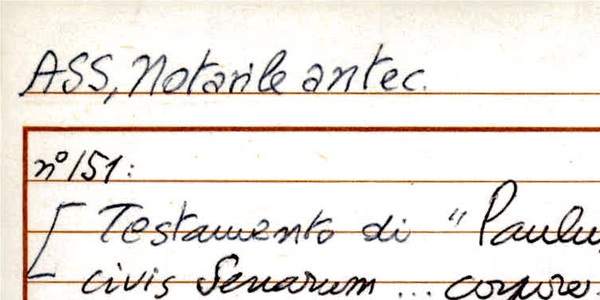 ASS, Notarile antec.
n° 151:
[ Testamento di "Paulus
civis Senarum ... corpore